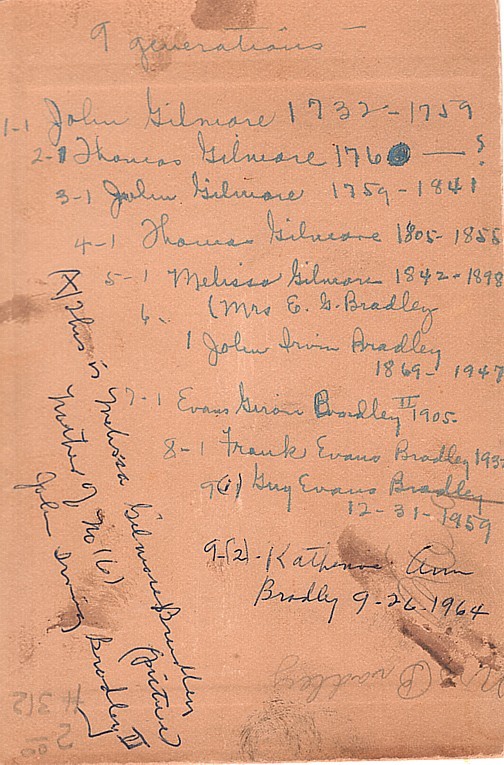 9 generations
1-1 John Gilmore 1732-1759
2-1 Thomas Gilmore 176 — ?
3-1 John Gilmore 1759-1841
4-1 Thomas Gilmore 1805-1855
5-1 Melissa Gilmore 1842-1898
6- (Mrs E. G. Bradley
1 John Irvin Bradley
1869-1947
7-1 Evans Geron Bradley II 1905-
8-1 Frank Evans Bradley 193
9(1) Guy Evans Bradley
12-31-1959
9-(2)- Katherine Ann
Bradly 9-26-1964
(X) This is Melissa Gilmore Bradley
(picture)
Mother of No (6)
John Irvin Bradley II
Bradley
H 312
2